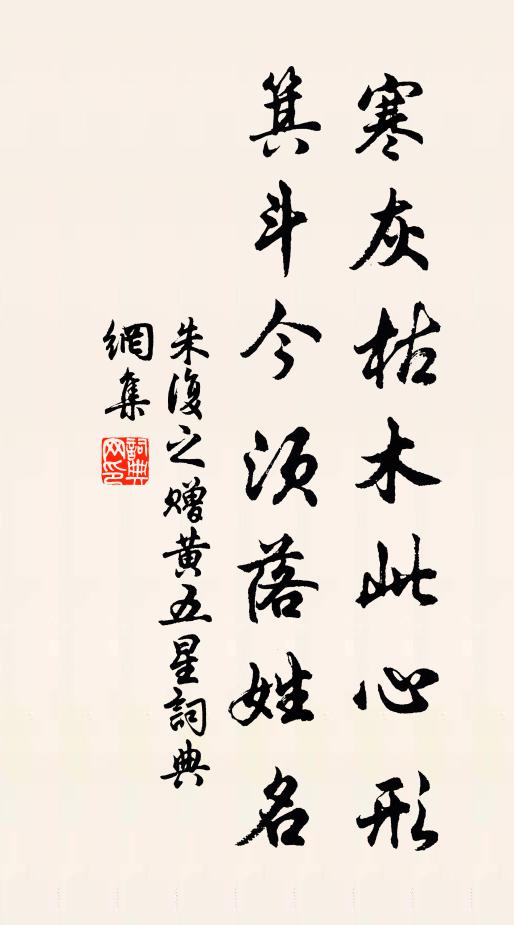 寒灰枯木此心形
箕斗今須落姓名
朱復之赠黄五星詞典
網集
詞典
网印